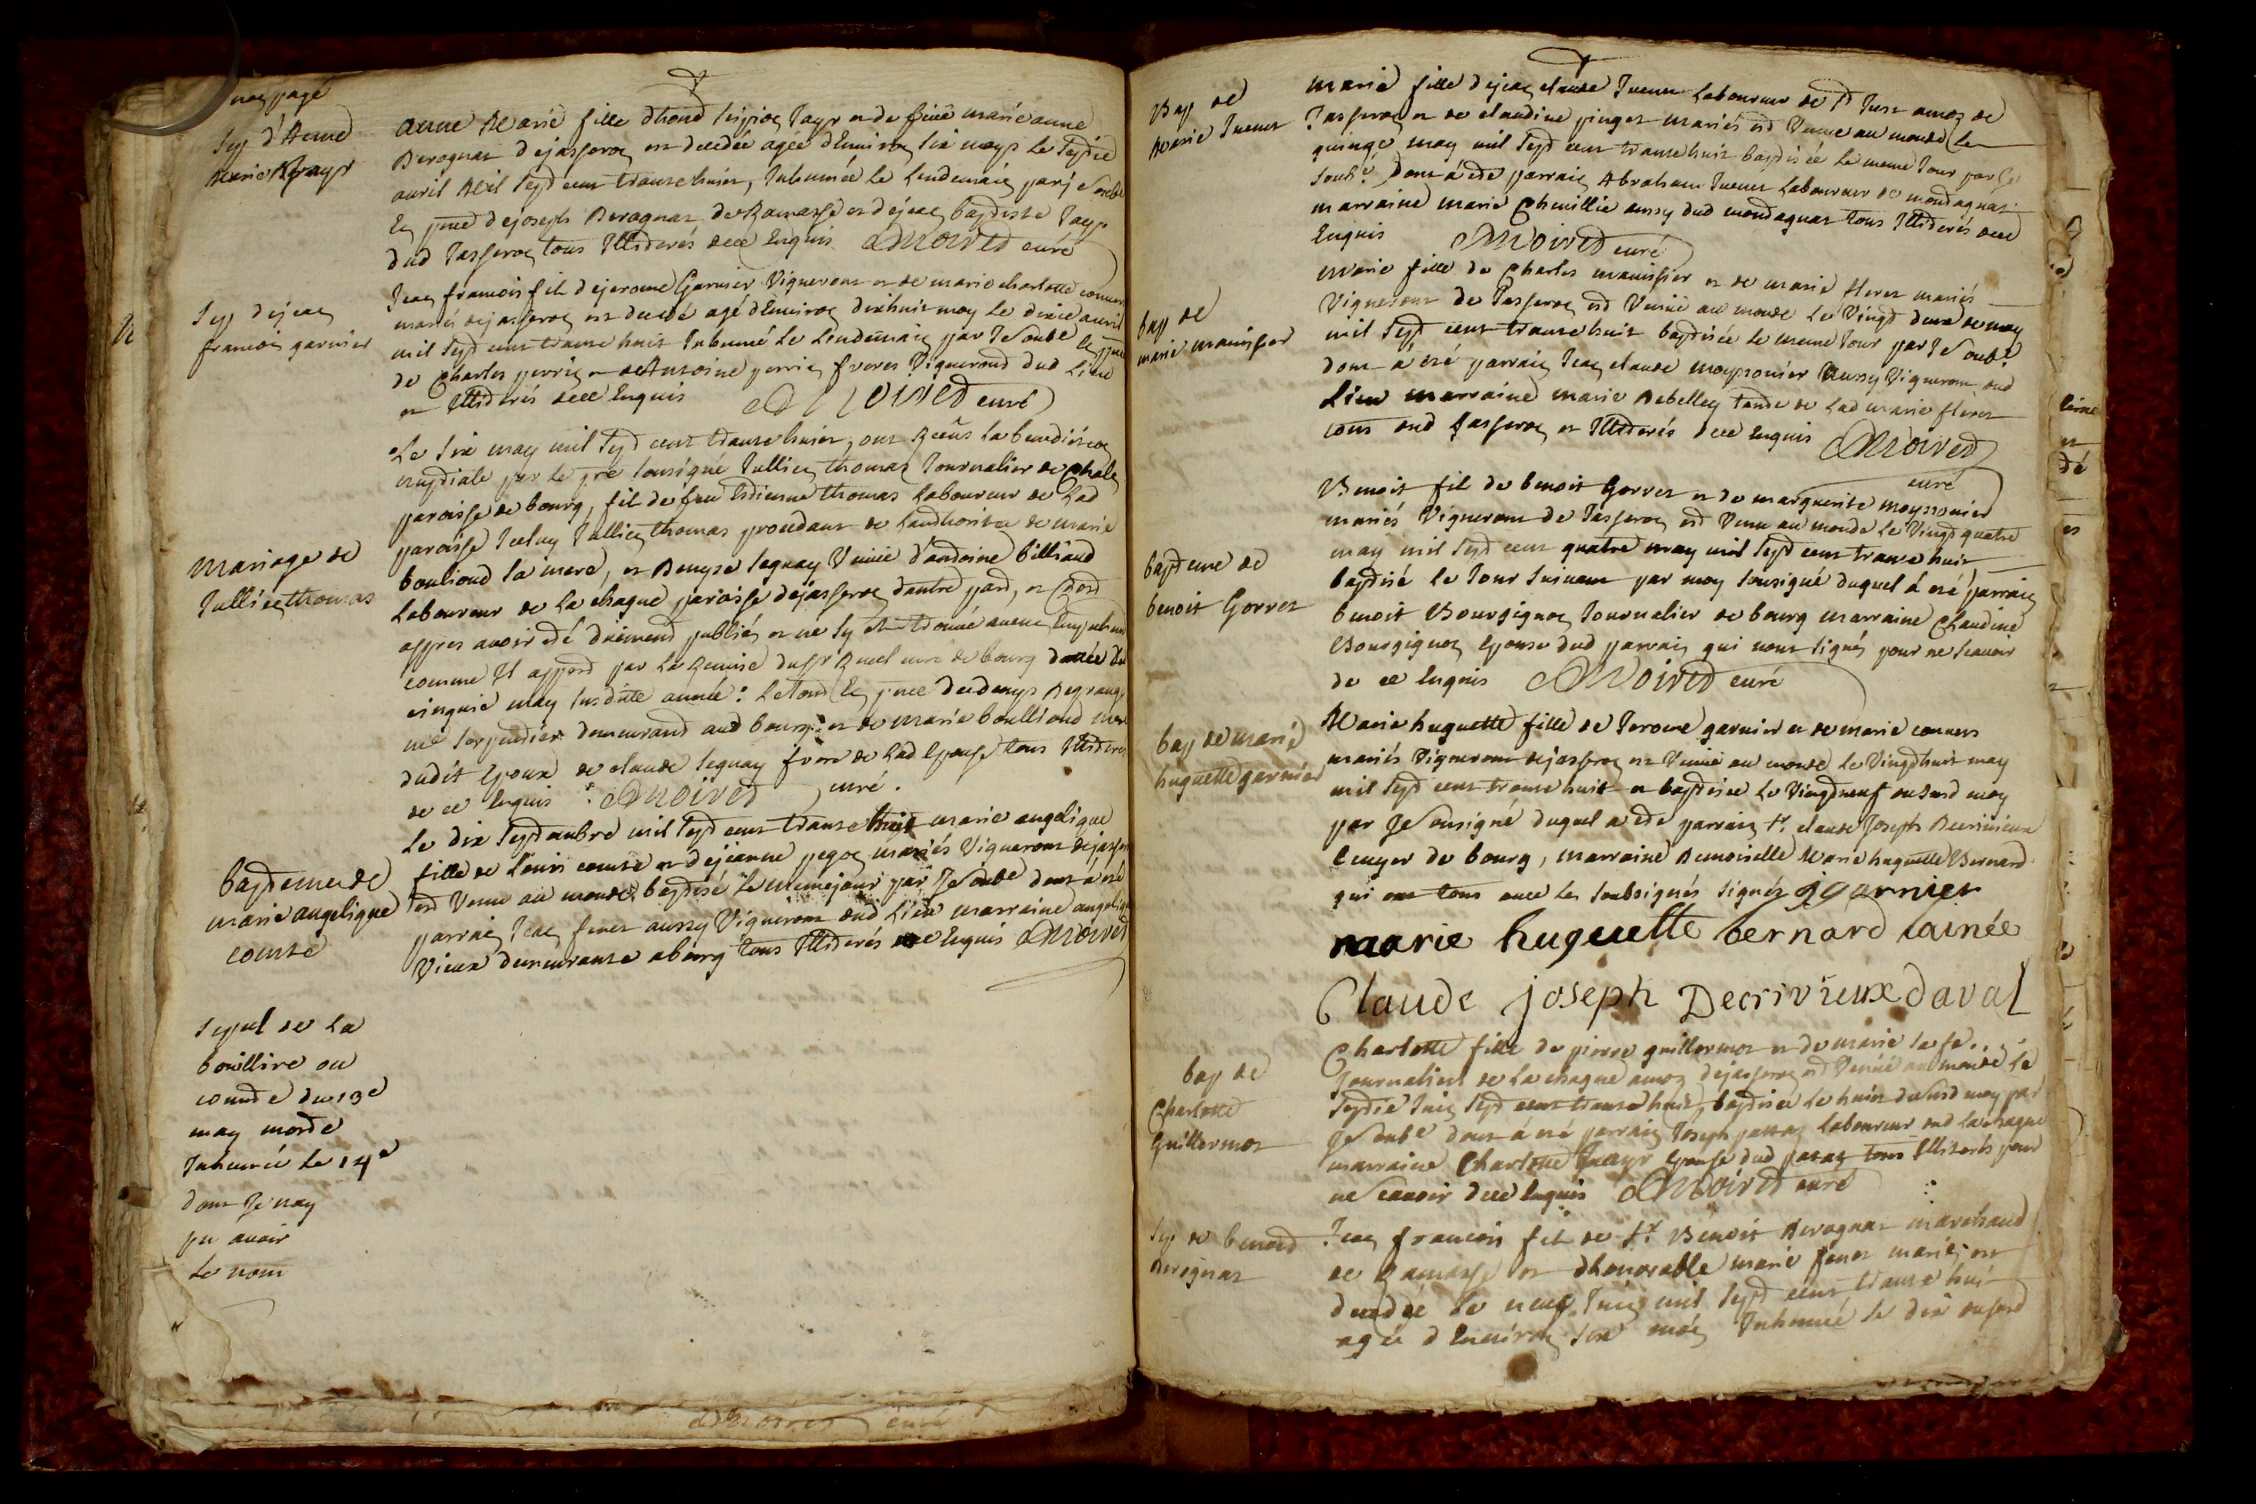 Sep d'Anne
Marie Jayr
Anne Marie fille dhond Sipion Jayr et de feue marie anne
Berognat dejasseron est decedée agée denviron six moys le septie
avril Mil Sept cent trante huit, Inhumée le lendemain par je soubs
En pnce de joseph Berognat de Ramasse et de jean baptiste Jayr
dud Jasseron tous Illiterés de ce Enquis DMoiret curé
Sep de jean
francois garnier
Jean francois fil de jerome Garnier Vigneront et de marie charlotte convers
mariés de jasseron est decedé agé denviron dixhuit moy le dixie avril
mil Sept cent trante huit Inhumé le lendemain par Je soubs En pnce
de Charles perrin et de Antoine perrin freres Vignerond dud Lieu
et Illiterés de ce Enquis DMoiret curé
Mariage de
Jullien thomas
Le Six may mil Sept cent trante huit, ont Receus la benediction
nuptiale par le pre sousigné Jullien thomas Journalier de Chale
paroisse de bourg, fil de feu Estienne thomas Laboureur de Lad
paroisse Iceluy Jullien thomas procedant de Lauthorité de marie
boulioud sa mere, et Denyse seguay Veuve d'antoine billioud
Laboureur de La chagne paroisse dejasseron dautre part, et
appres avoir eté duement publiés et ne sy etant trouvé aucun Empechem
comme Il appert par La Remise du Sr Ruel curé de bourg dattée du
cinquie may susditte année: Le tout En pnce de denys Degrange
me serpentier demeurand aud bourg et de marie boullioud mere
dudit Epoux de claude seguay frere de Lad Epouse tous Illiteres
de ce Enquis DMoiret curé.
baptemede
marie angelique
comte
Le dix Septambre mil Sept cent trante huit marie angelique
fille de Louis comte et dejeanne pegoz mariés Vigneront dejasseron
est Venue au monde baptisé le memejour par Je soubs dont a eté
parrain Jean fenet aussy Vigneront dud Lieu marraine angelique
Vieux demeurante abourg tous Illiterés de ce Enquis DMoiret
sepul de La
bouillire ou
comte du 13e
may morte
Inhumée le 14e
dont Je nay
pu avoir
Le nom
DMoiret curé
Bap de
Marie Juenet
marie fille de jean claude Juenet Laboureur de St Just annex de
Jasseron et de claudine pinget mariés est Venue au monde Le
quinze may mil Sept cent trante huit baptisée Le meme Jour par Je
soubs, dont a été parrain Abraham Juenet Laboureur de montagnat
marraine marie Chevillie aussy dud montagnat tous Illiterés de ce
Enquis DMoiret curé
bap de
marie manissier
Marie fille de Charles manissier et de marie floret mariés
Vigneront de Jasseron est Venue au monde Le Vingt deux de may
mil Sept cent trante huit baptisée Le meme Jour par Je soubs
dont a eté parrain Jean claude moyssonier Aussy Vigneron dud
Lieu marraine marie Debelley tante de Lad marie floret
tous dud Jasseron et Illiterés de ce Enquis DMoiret
curé
bapteme de
benoit Gorret
Benoit fil de benoit Gorret et de marguerite moyssonier
mariés Vigneront de Jasseron est Venu au monde Le Vingt quatre
may mil Sept cent quatre may mil Sept cent trante huit
baptisé Le Jour Suivant par moy sousigné duquel a eté parrain
benoit Bourgignon Journalier de bourg marraine Claudine
Bourgignon Epouse dud parrain qui nont signés pour ne scavoir
de ce Enquis DMoiret curé
bap de marie
huguette garnier
Marie huguette fille de Jerome garnier et de marie convers
mariés Vigneront dejasseron est Venue au monde Le Vingthuit may
mil Sept cent trante huit et baptisée Le Vingtneuf dususd may
par Je sousigné duquel a eté parrain Sr. claude Joseph Decrivieux
Ecuyer de bourg, marraine Demoiselle Marie huguette Bernard
qui ont tous avec les soubsignés signés jgarnier
marie huguette bernard lainée
Claude joseph Decrivieux daval
bap de
Charlotte
Guillermot
Charlotte fille de pierre guillermot et de marie
Journaliers de La chagne annex dejasseron est Venue au monde Le
septie Juin Sept cent trante huit, baptisée Le huit dusud moy par
Je soubs dont a eté parrain Joseph pattaz Laboureur aud La chagne
marraine Charlotte Jayr Epouse dud patat tous Illiterés pour
ne scavoir de ce Enquis DMoiret curé
Sep de benoit
Berognat
Jean francois fil de Sr. Benoit Berognat marchand
de Ramasse et dhonorable marie fenet mariés, est
decedée Le neuf Juin mil Sept cent trante huit
agée d Environ six moy Inhumée le dix dusud